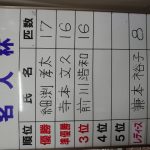 名人杯
順位 氏名 匹数
優勝 細渕孝太 17
準優勝 寺本文久 16
3位 前川浩和 16
4位
5位
レディース 兼本裕子 8